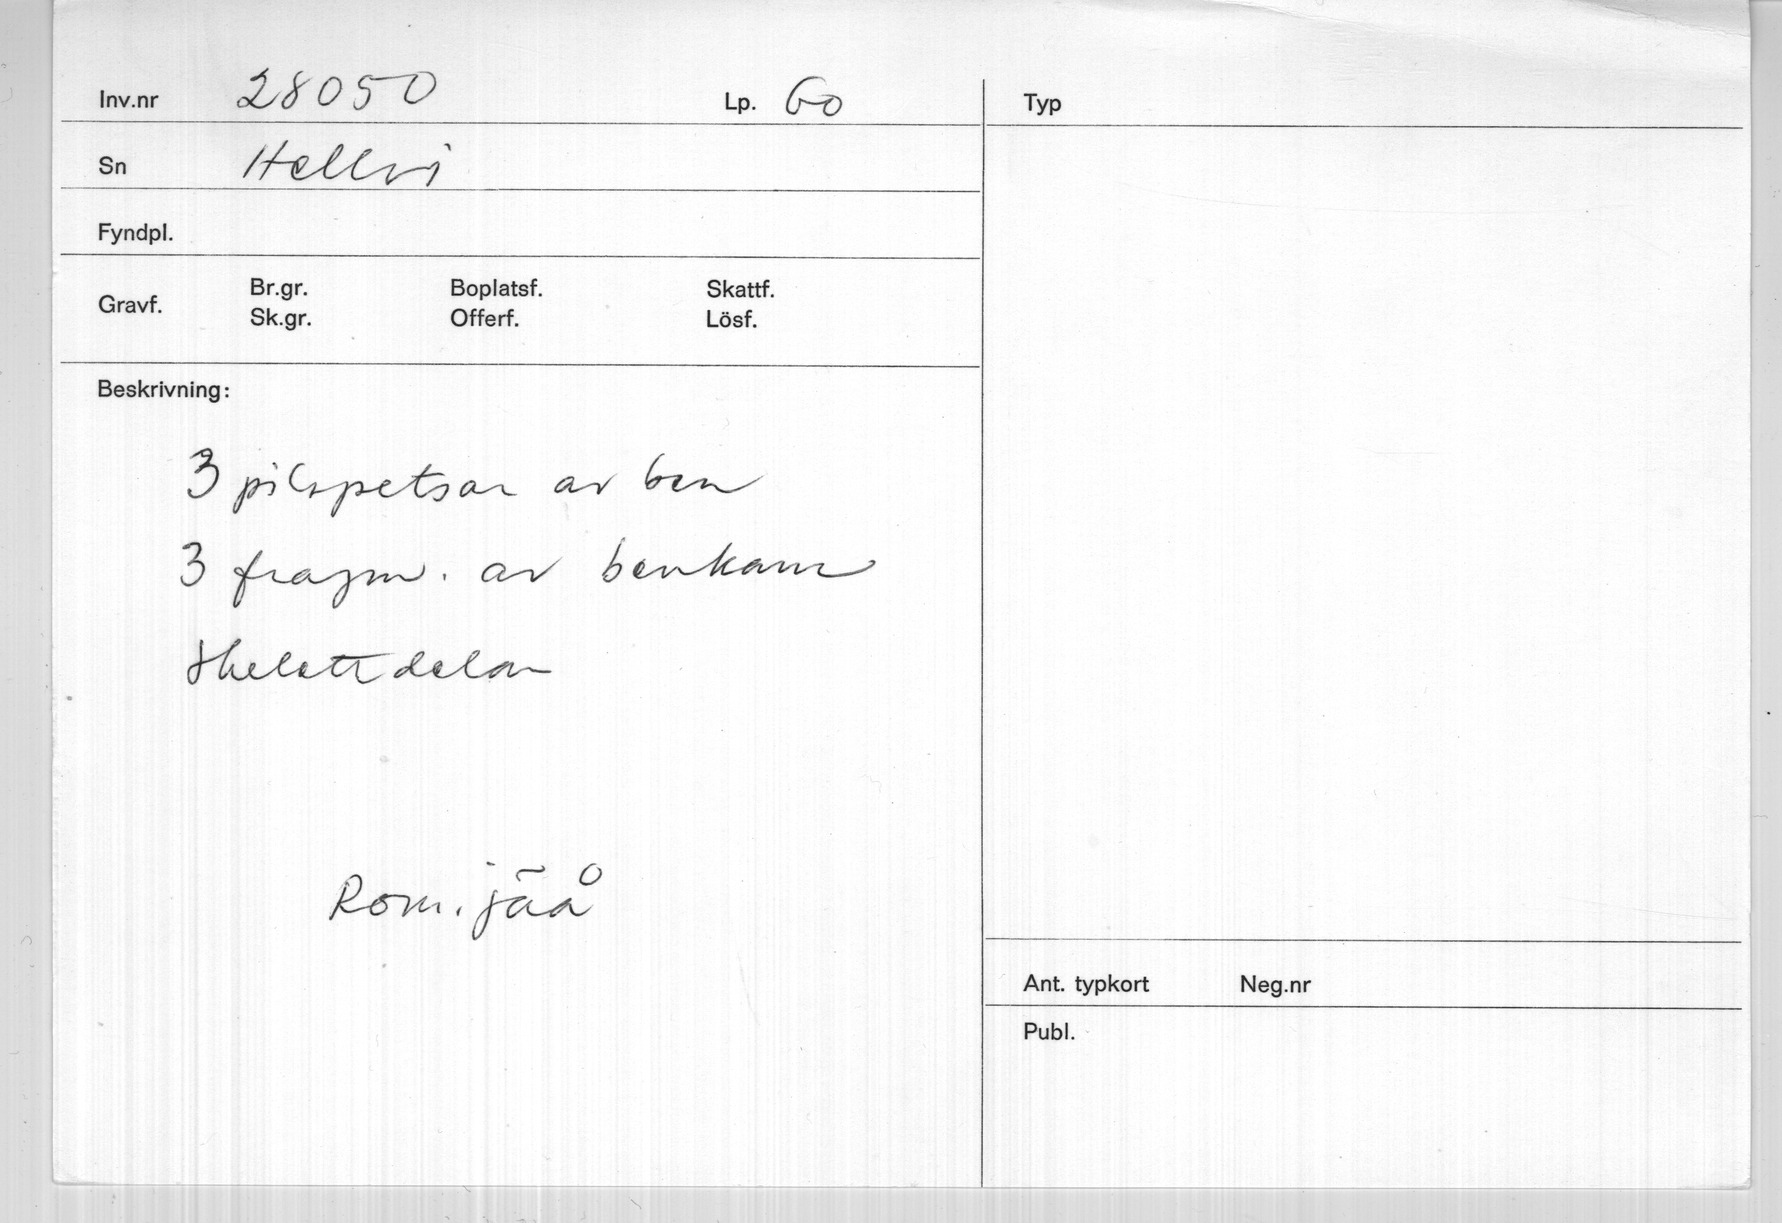 Inv.nr 28050 Lp. Go
Sn Hellvi
Fyndpl.
Gravf. Br.gr. Boplatsf. Skattf.
Sk.gr. Offerf. Lösf.
Beskrivning:
3 pilspetsar av ben
3 fragm. av benkam
Skelettdelar
Rom. jäå
Typ
Ant. typkort Neg.nr
Publ.